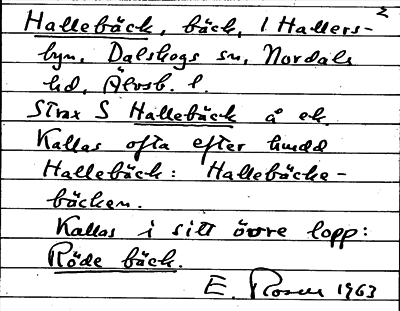 2
Hallebäck, bäck, i Hallers-
byn, Dalskogs sn, Nordals
hd, Älvsb. l.
Strax S Hallebäck å ek.
Kallas ofta efter hmdd
Hallebäck: Hallebäcke-
bäcken.
Kallas i sitt övre lopp:
Röde bäck.
E. Rosen 1963